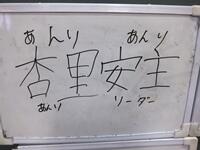 あんり　あんり
杏里安主
あんり　リーダー